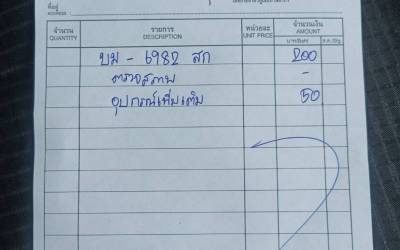 ที่อยู่
ADDRESS
จำนวน รายการ หน่วยละ จำนวนเงิน
QUANTITY DESCRIPTION UNIT PRICE AMOUNT
บม - 6982 สก 200
ตรวจสภาพ -
อุปกรณ์เพิ่มเติม 50